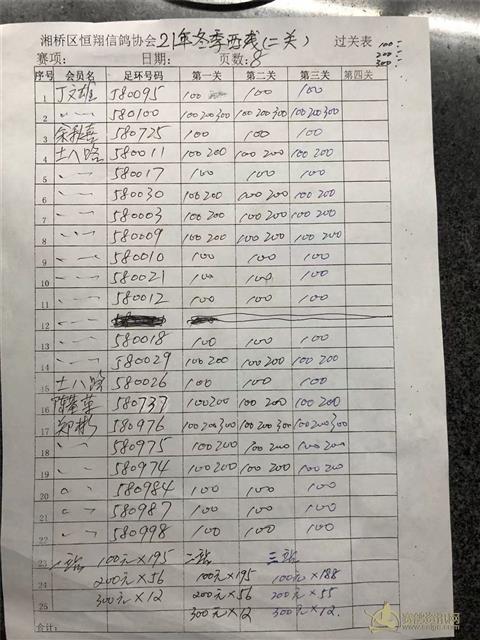 湘桥区恒翔信鸽协会21年冬季西线(二关) 过关表 100
200
300
赛项: 日期: 页数: 8
序号 会员名 足环号码 第一关 第二关 第三关 第四关
1 丁文雄 580095 100 100 100
2 〃 580100 100 200 300 100 200 300 100 200 300
3 余秋喜 580725 100 100 100
4 土八路 580011 100 200 100 200 100 200
5 〃 580017 100 100 100
6 〃 580030 100 200 100 200 100 200
7 〃 580003 100 200 100 200 100 200
8 〃 580009 100 200 100 200 100 200
9 〃 580010 100 100 100
10 〃 580021 100 100 100
11 〃 580012 100 100 100
12 〃
13 〃 580018 100 100 100
14 〃 580029 100 200 100 200 100 200
15 土八路 580026 100 100 100
16 580737 100 200 100 200 100 200
17 郑彬 580976 100 200 300 100 200 300 100 200 300
18 〃 580975 100 200 100 200 100 200
19 〃 580974 100 200 100 200 100 200
20 〃 580984 100 100 100
21 〃 580987 100 100 100
22 〃 580998 100 100 100
23 一站 100元×195 二站 三站
24 200元×56 100元×195 100元×188
25 300元×12 200元×56 200元×55
合计: 300元×12 300元×12